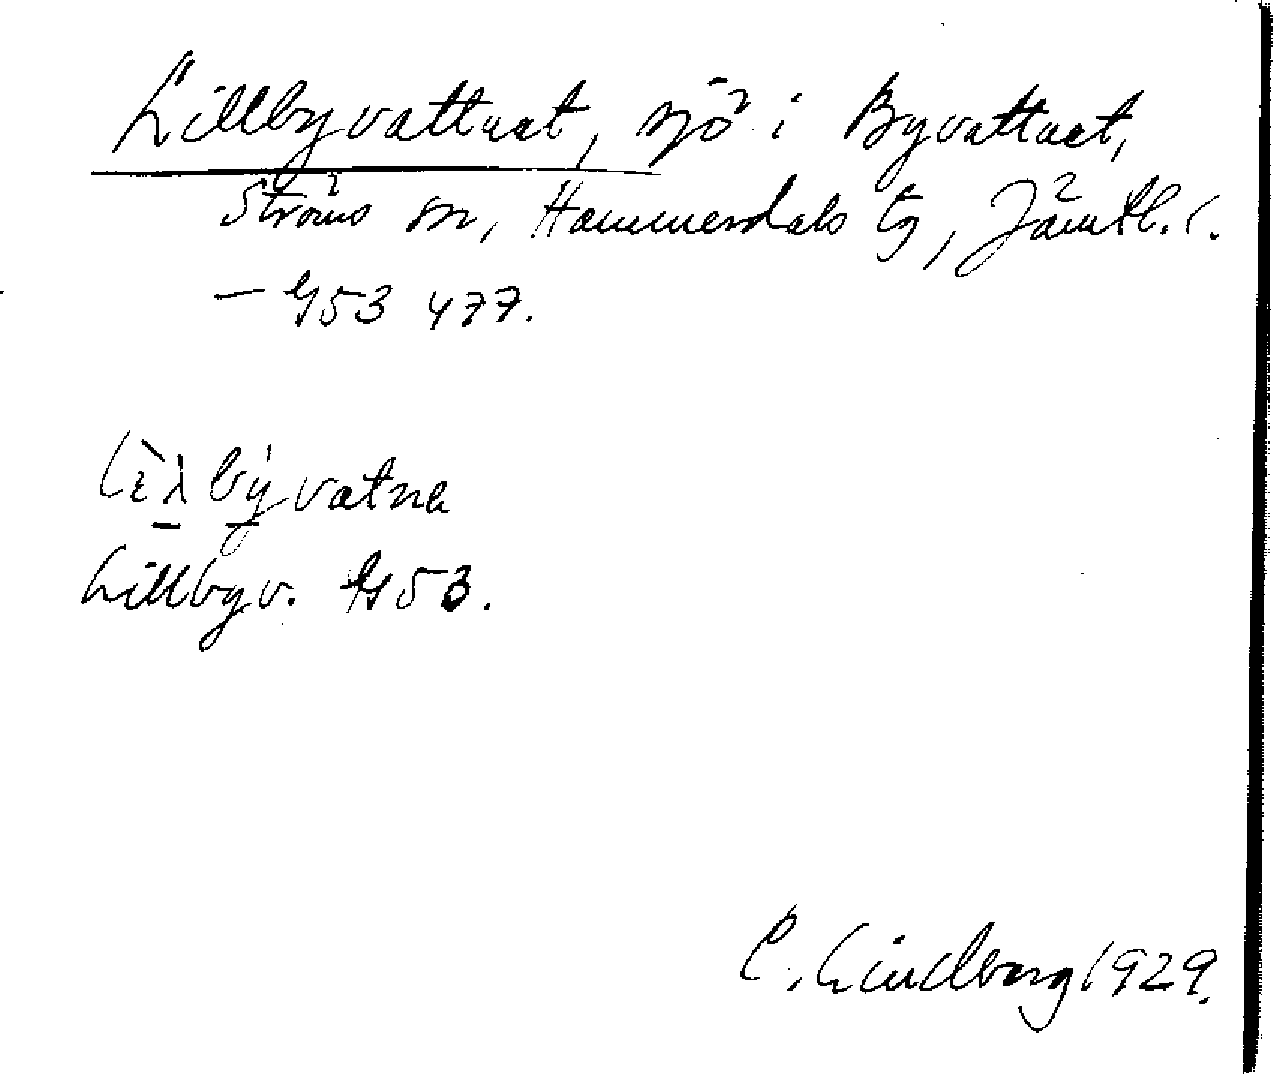 Lillbyvattnet, sjö i Byvattnet,
Ströms sn, Hammerdals tg, Jämtl. l.
— G53 477.
lèλbývatnɐ
Lillbyv. G53.
C. Lindberg 1929.